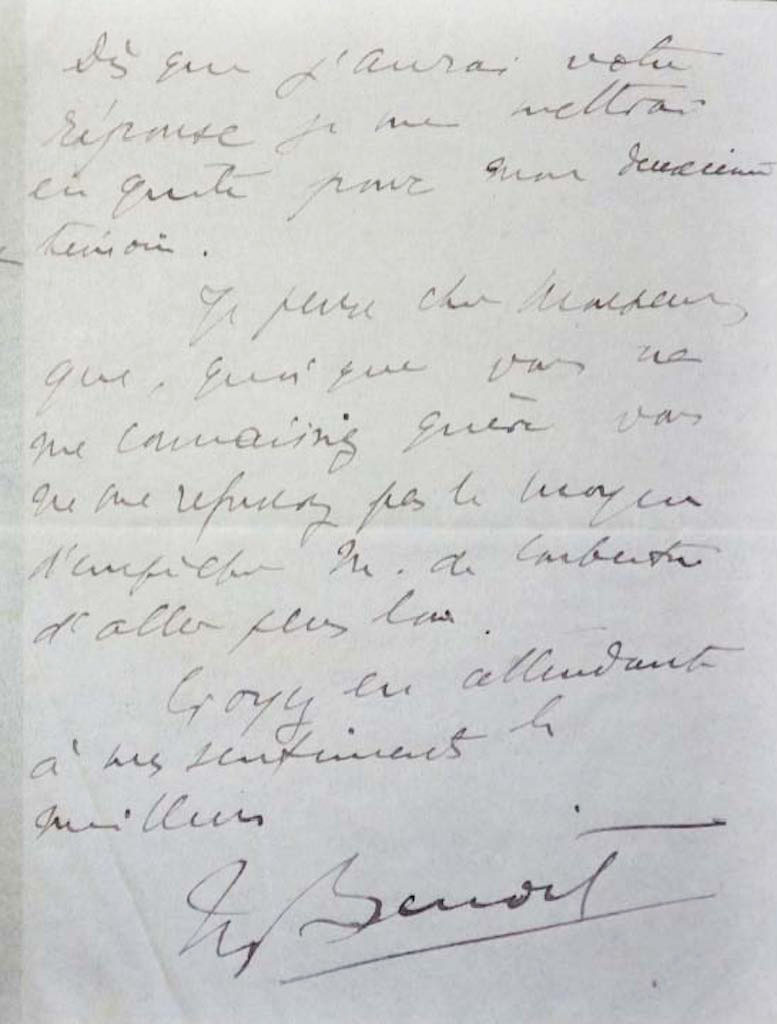 Dès que j'aurai votre
réponse je me mettrai
en quête pour mon deuxième
témoin.
Je pense cher Monsieur
que, quoique vous ne
me connaissiez guère vous
ne me refuserez pas le moyen
d'empêcher M. de
d'aller plus loin.
Croyez en attendant
à mes sentiments les
meilleurs
Benoit